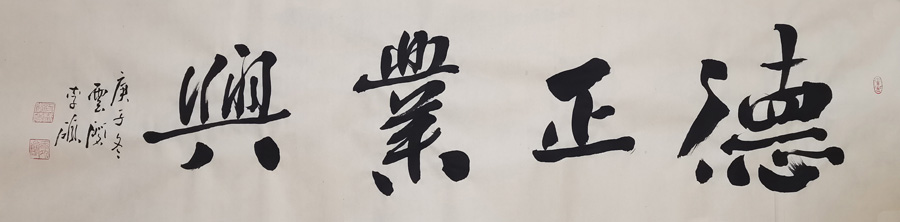 德正業興
庚子冬
雲
李